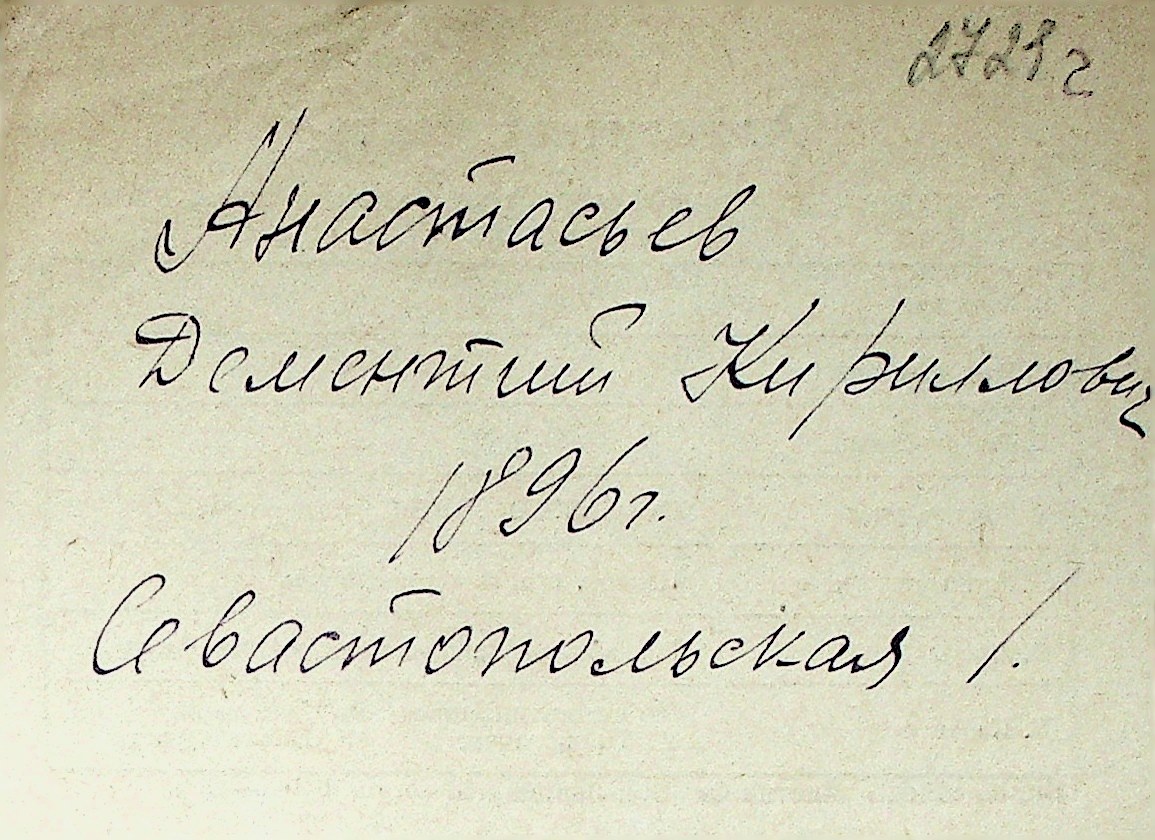 2721 г
Анастасьев
Дементий Кириллович
1896 г.
Севастопольская 1.